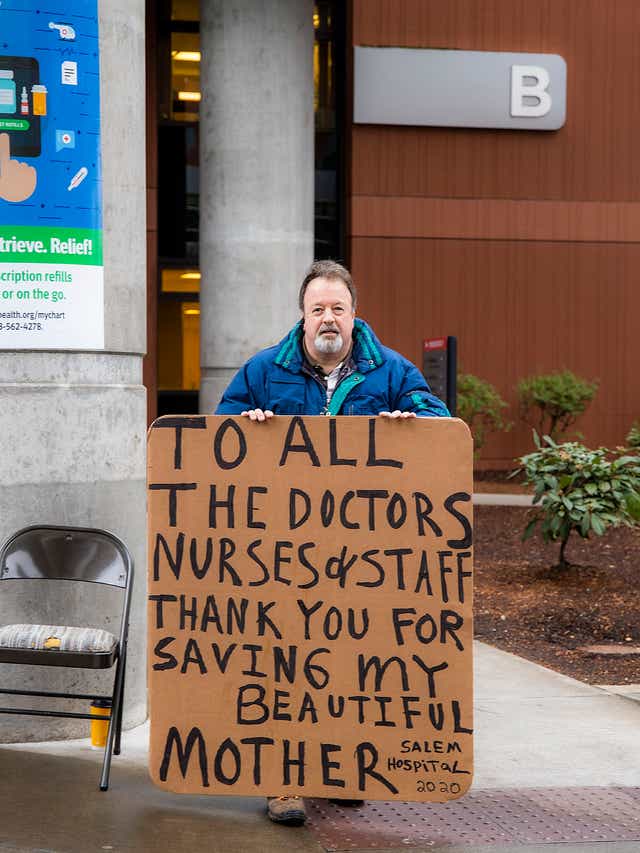 B
trieve. Relief!
cription refills
or on the go.
ealth.org/mychart
-562-4278.
TO ALL
THE DOCTORS
NURSES & STAFF
THANK YOU FOR
SAVING MY
BEAUTIFUL
MOTHER
SALEM
HOSPITAL
2020